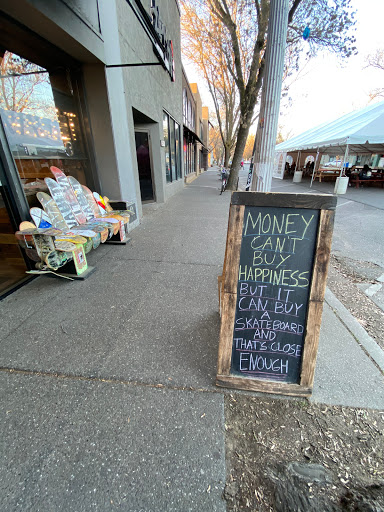 MONEY
CAN'T
BUY
HAPPINESS
BUT IT
CAN BUY
A
SKATEBOARD
AND
THAT'S CLOSE
ENOUGH